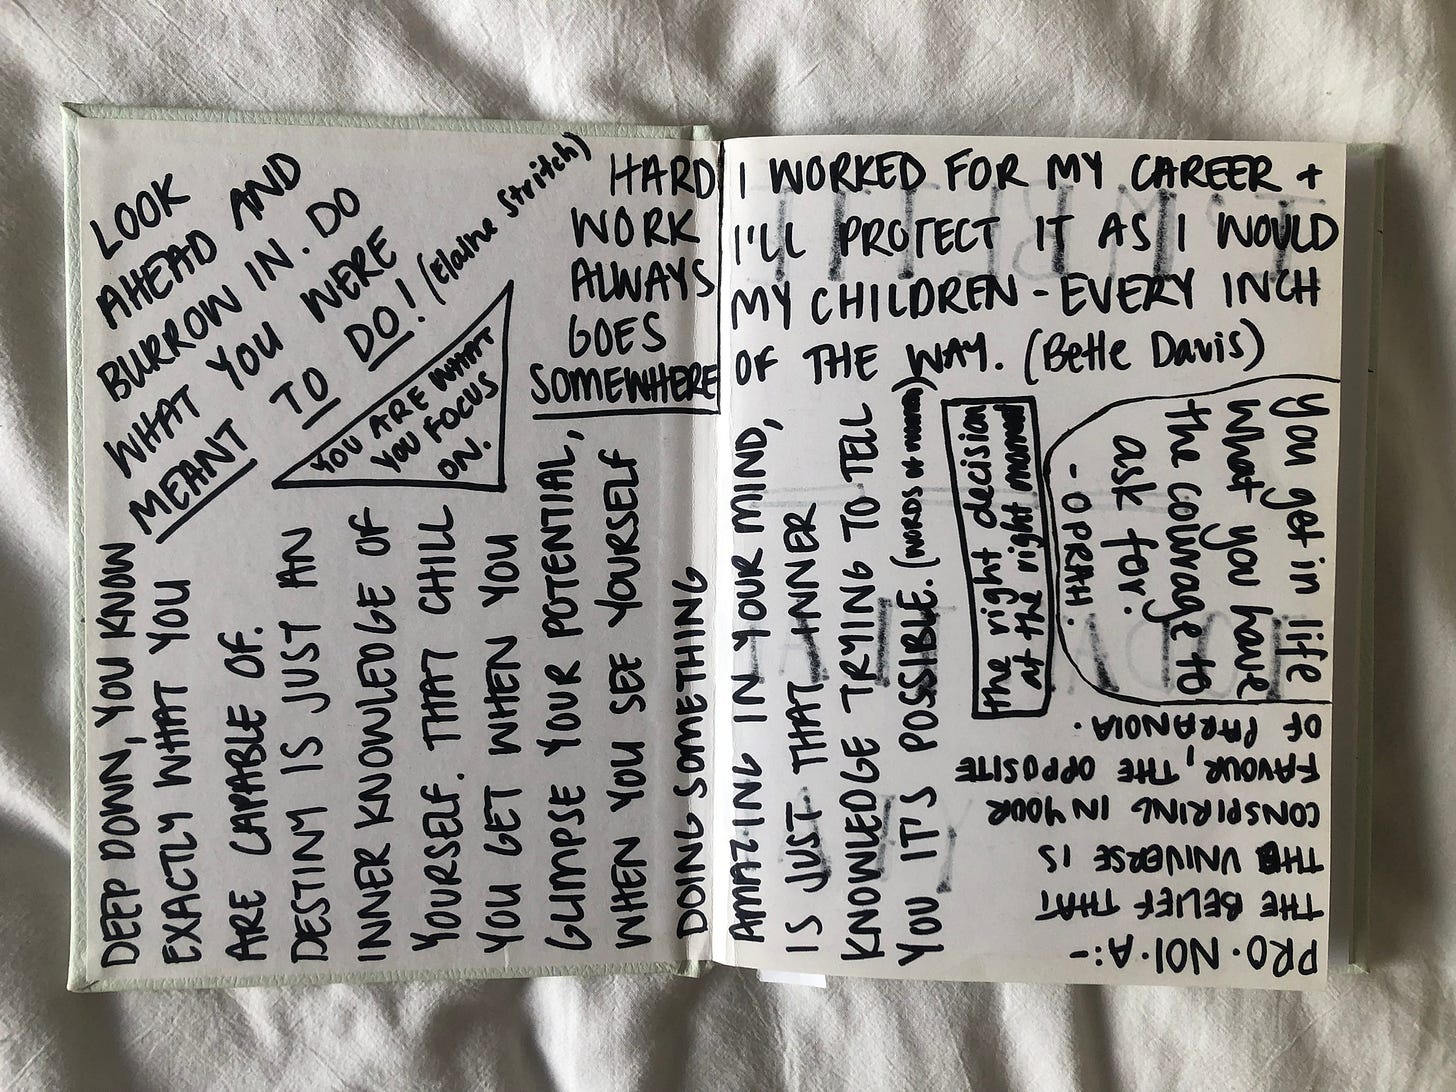 LOOK
AHEAD AND
BURROW IN. DO
WHAT YOU WERE
MEANT TO DO! (Elaine Stritch)
YOU ARE WHAT
YOU FOCUS
ON.
HARD
WORK
ALWAYS
GOES
SOMEWHERE
DEEP DOWN, YOU KNOW
EXACTLY WHAT YOU
ARE CAPABLE OF.
DESTINY IS JUST AN
INNER KNOWLEDGE OF
YOURSELF. THAT CHILL
YOU GET WHEN YOU
GLIMPSE YOUR POTENTIAL,
WHEN YOU SEE YOURSELF
DOING SOMETHING
AMAZING IN YOUR MIND,
IS JUST THAT INNER
KNOWLEDGE TRYING TO TELL
YOU IT'S POSSIBLE. (WORDS OF WOMEN)
I WORKED FOR MY CAREER +
I'LL PROTECT IT AS I WOULD
MY CHILDREN - EVERY INCH
OF THE WAY. (Bette Davis)
the right decision
at the right moment
You get in life
what you have
the courage to
ask for.
- OPRAH.
PRO·NOI·A:-
THE BELIEF THAT
THE UNIVERSE IS
CONSPIRING IN YOUR
FAVOUR, THE OPPOSITE
OF PARANOIA.